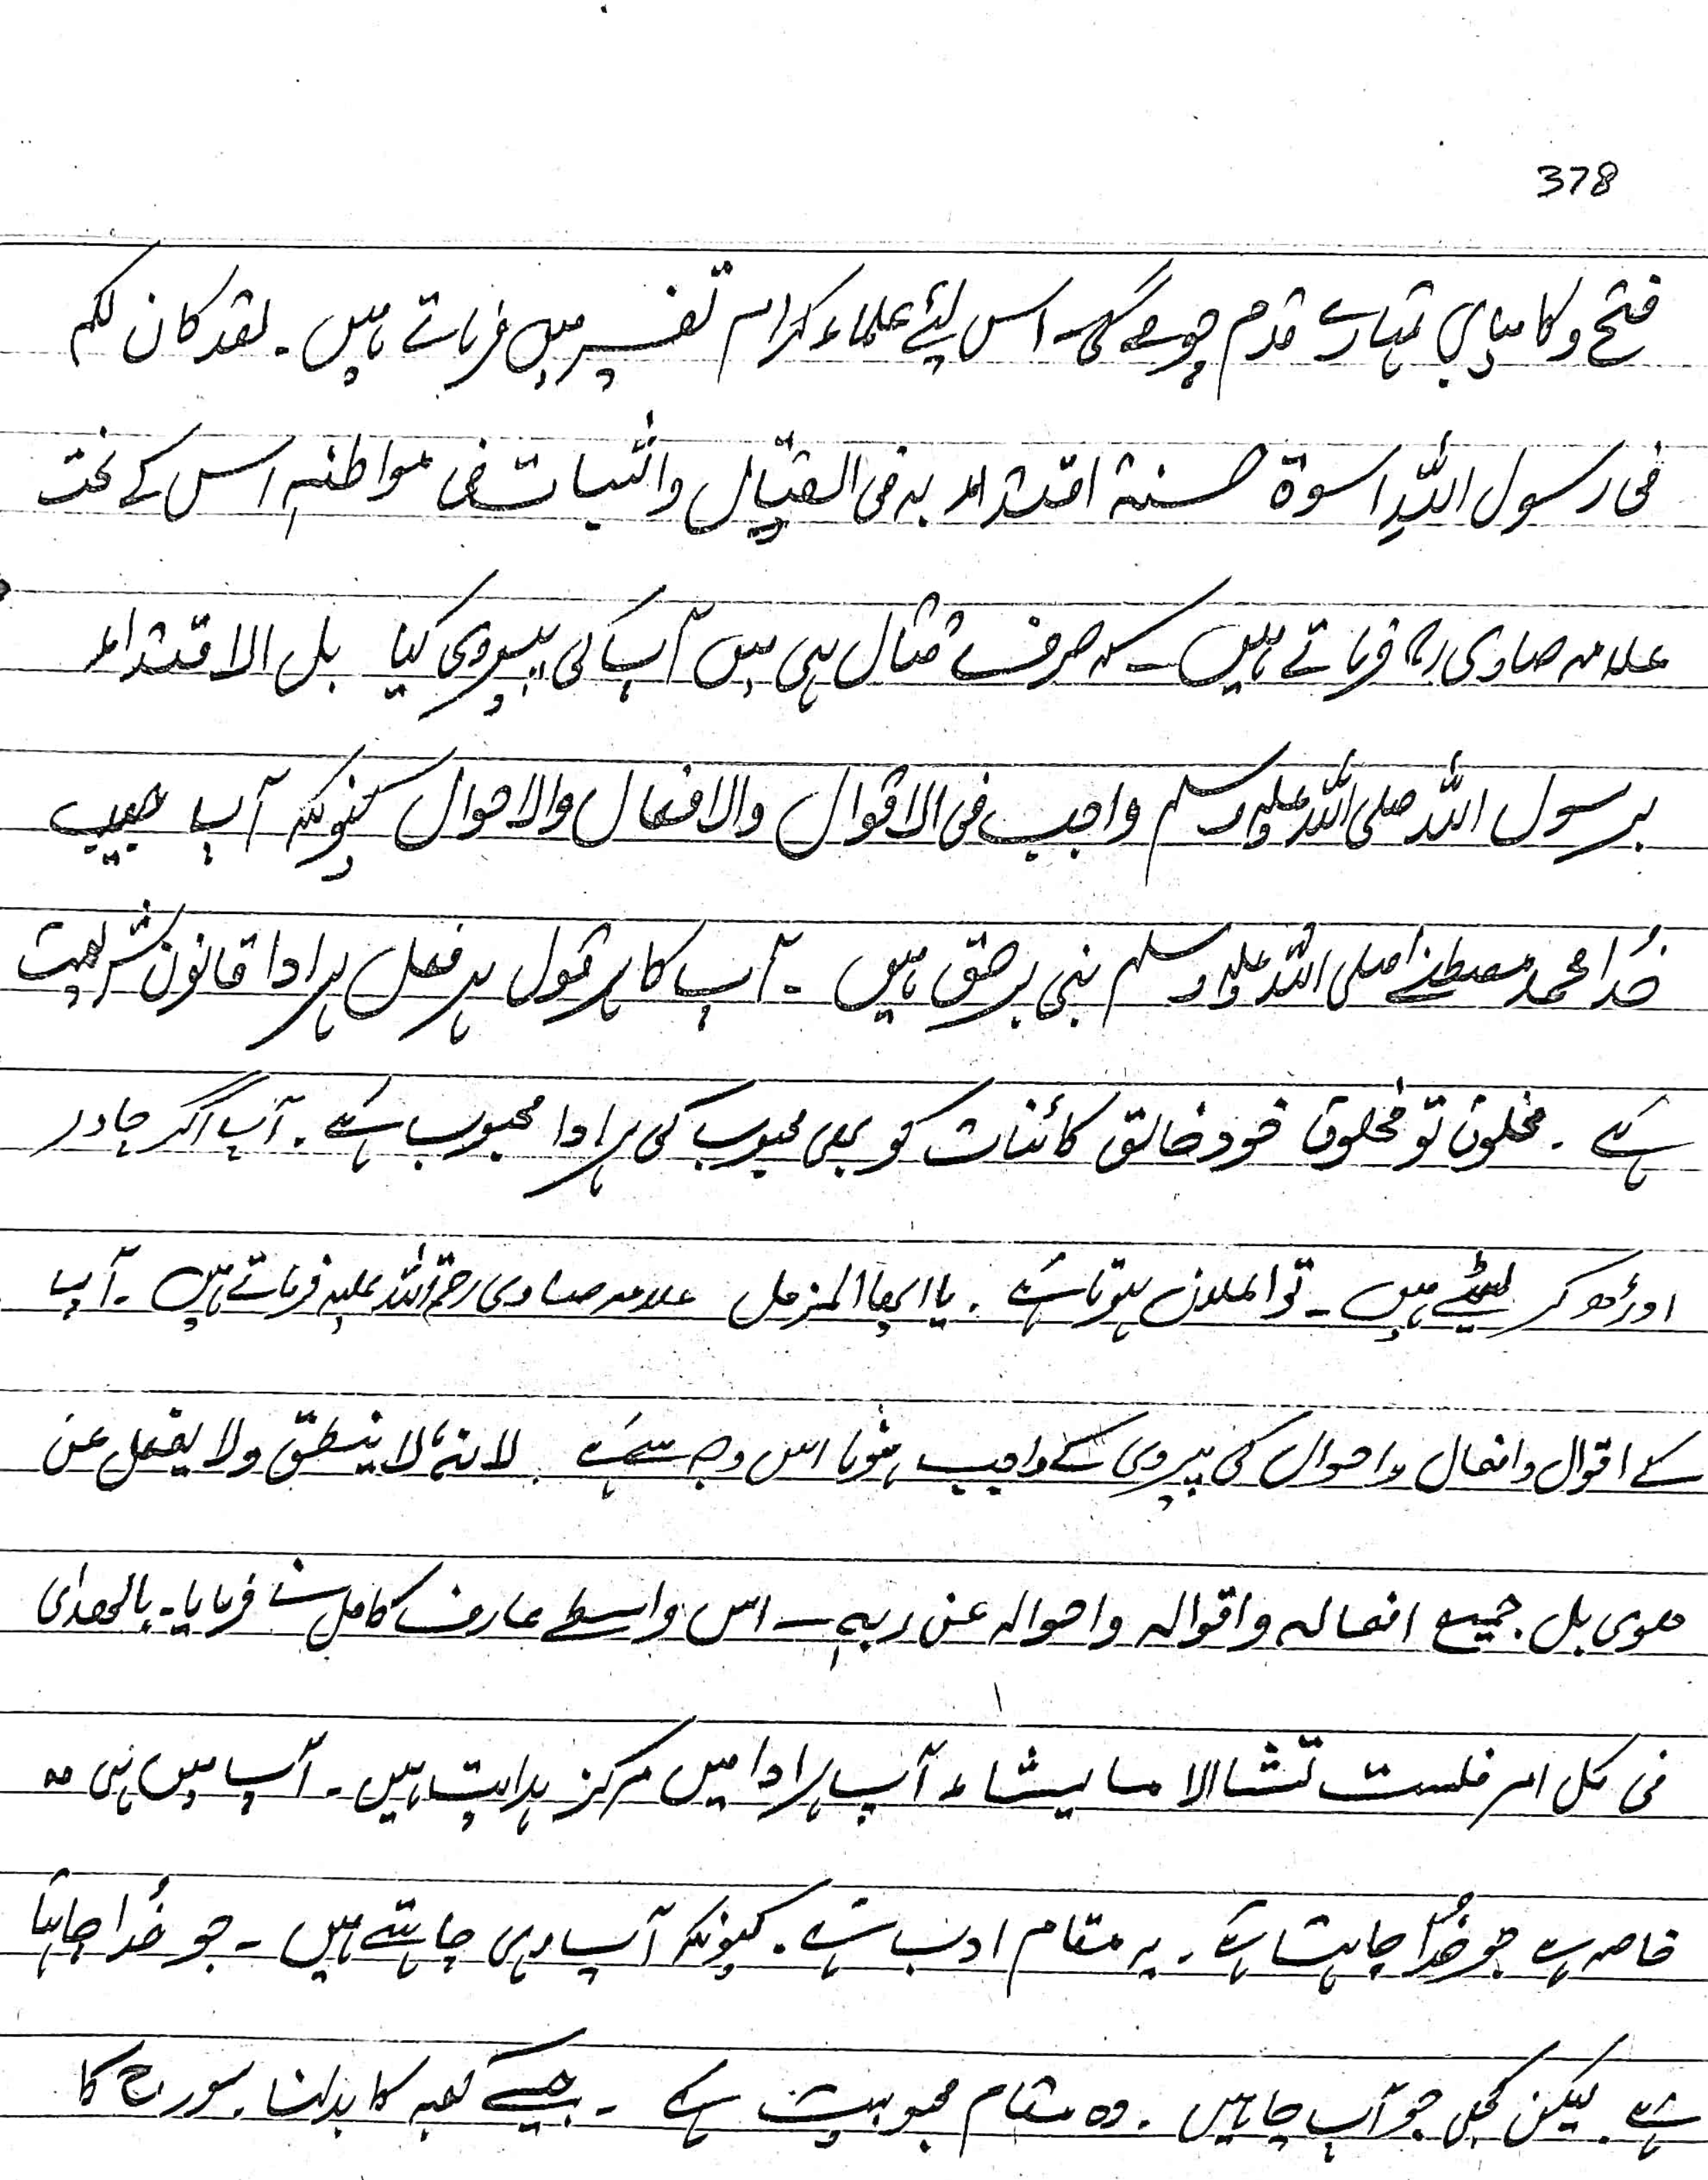 378
فتح و کامیابی تمہارے قدم چومے گی۔ اس لئے علماء کرام تفسیر میں فرماتے ہیں۔ لقد کان لکم
فی رسول اللہ اسوۃ حسنۃ اقتداء بہ فی القتال والثبات فی مواطنہ اس کے تحت
علامہ صاوی رح فرماتے ہیں۔ کہ صرف قتال ہی میں آپ کی پیروی کیا بل الاقتداء
برسول اللہ صلی اللہ علیہ وسلم واجب فی الاقوال والافعال والاحوال کیونکہ آپ حبیب
خُدا محمد مصطفےٰ صلی اللہ علیہ وسلم نبی برحق ہیں۔ آپ کا ہر قول ہر فعل ہر ادا قانون شریعت
ہے۔ مخلوق تو مخلوق خود خالق کائنات کو بھی محبوب کی ہر ادا محبوب ہے۔ آپ اگر چادر
اوڑھ کر لیٹے ہیں۔ تو اعلان ہوتا ہے۔ یا ایھا المزمل علامہ صاوی رحمۃ اللہ علیہ فرماتے ہیں۔ آپ
کے اقوال و افعال و احوال کی پیروی کے واجب ہونا اس وجہ سے ہے۔ لانہٗ لا ینطق ولا یفعل عن
ھوی بل جمیع افعالہ واقوالہ واحوالہ عن ربہٖ۔ اس واسطے عارف کامل نے فرمایا۔ بالھدای
فی کل امر فلست تشا الا ما یشاء آپ ہر ادا میں مرکز ہدایت ہیں۔ آپ میں ہی وہ
خاصہ ہے جو خُدا چاہتا ہے۔ یہ مقام ادب ہے۔ کیونکہ آپ وہی چاہتے ہیں۔ جو خُدا چاہتا
ہے۔ لیکن کبھی جو آپ چاہیں۔ وہ مقام محبوبیت ہے۔ جیسے کعبہ کا بدلنا۔ سورج کا